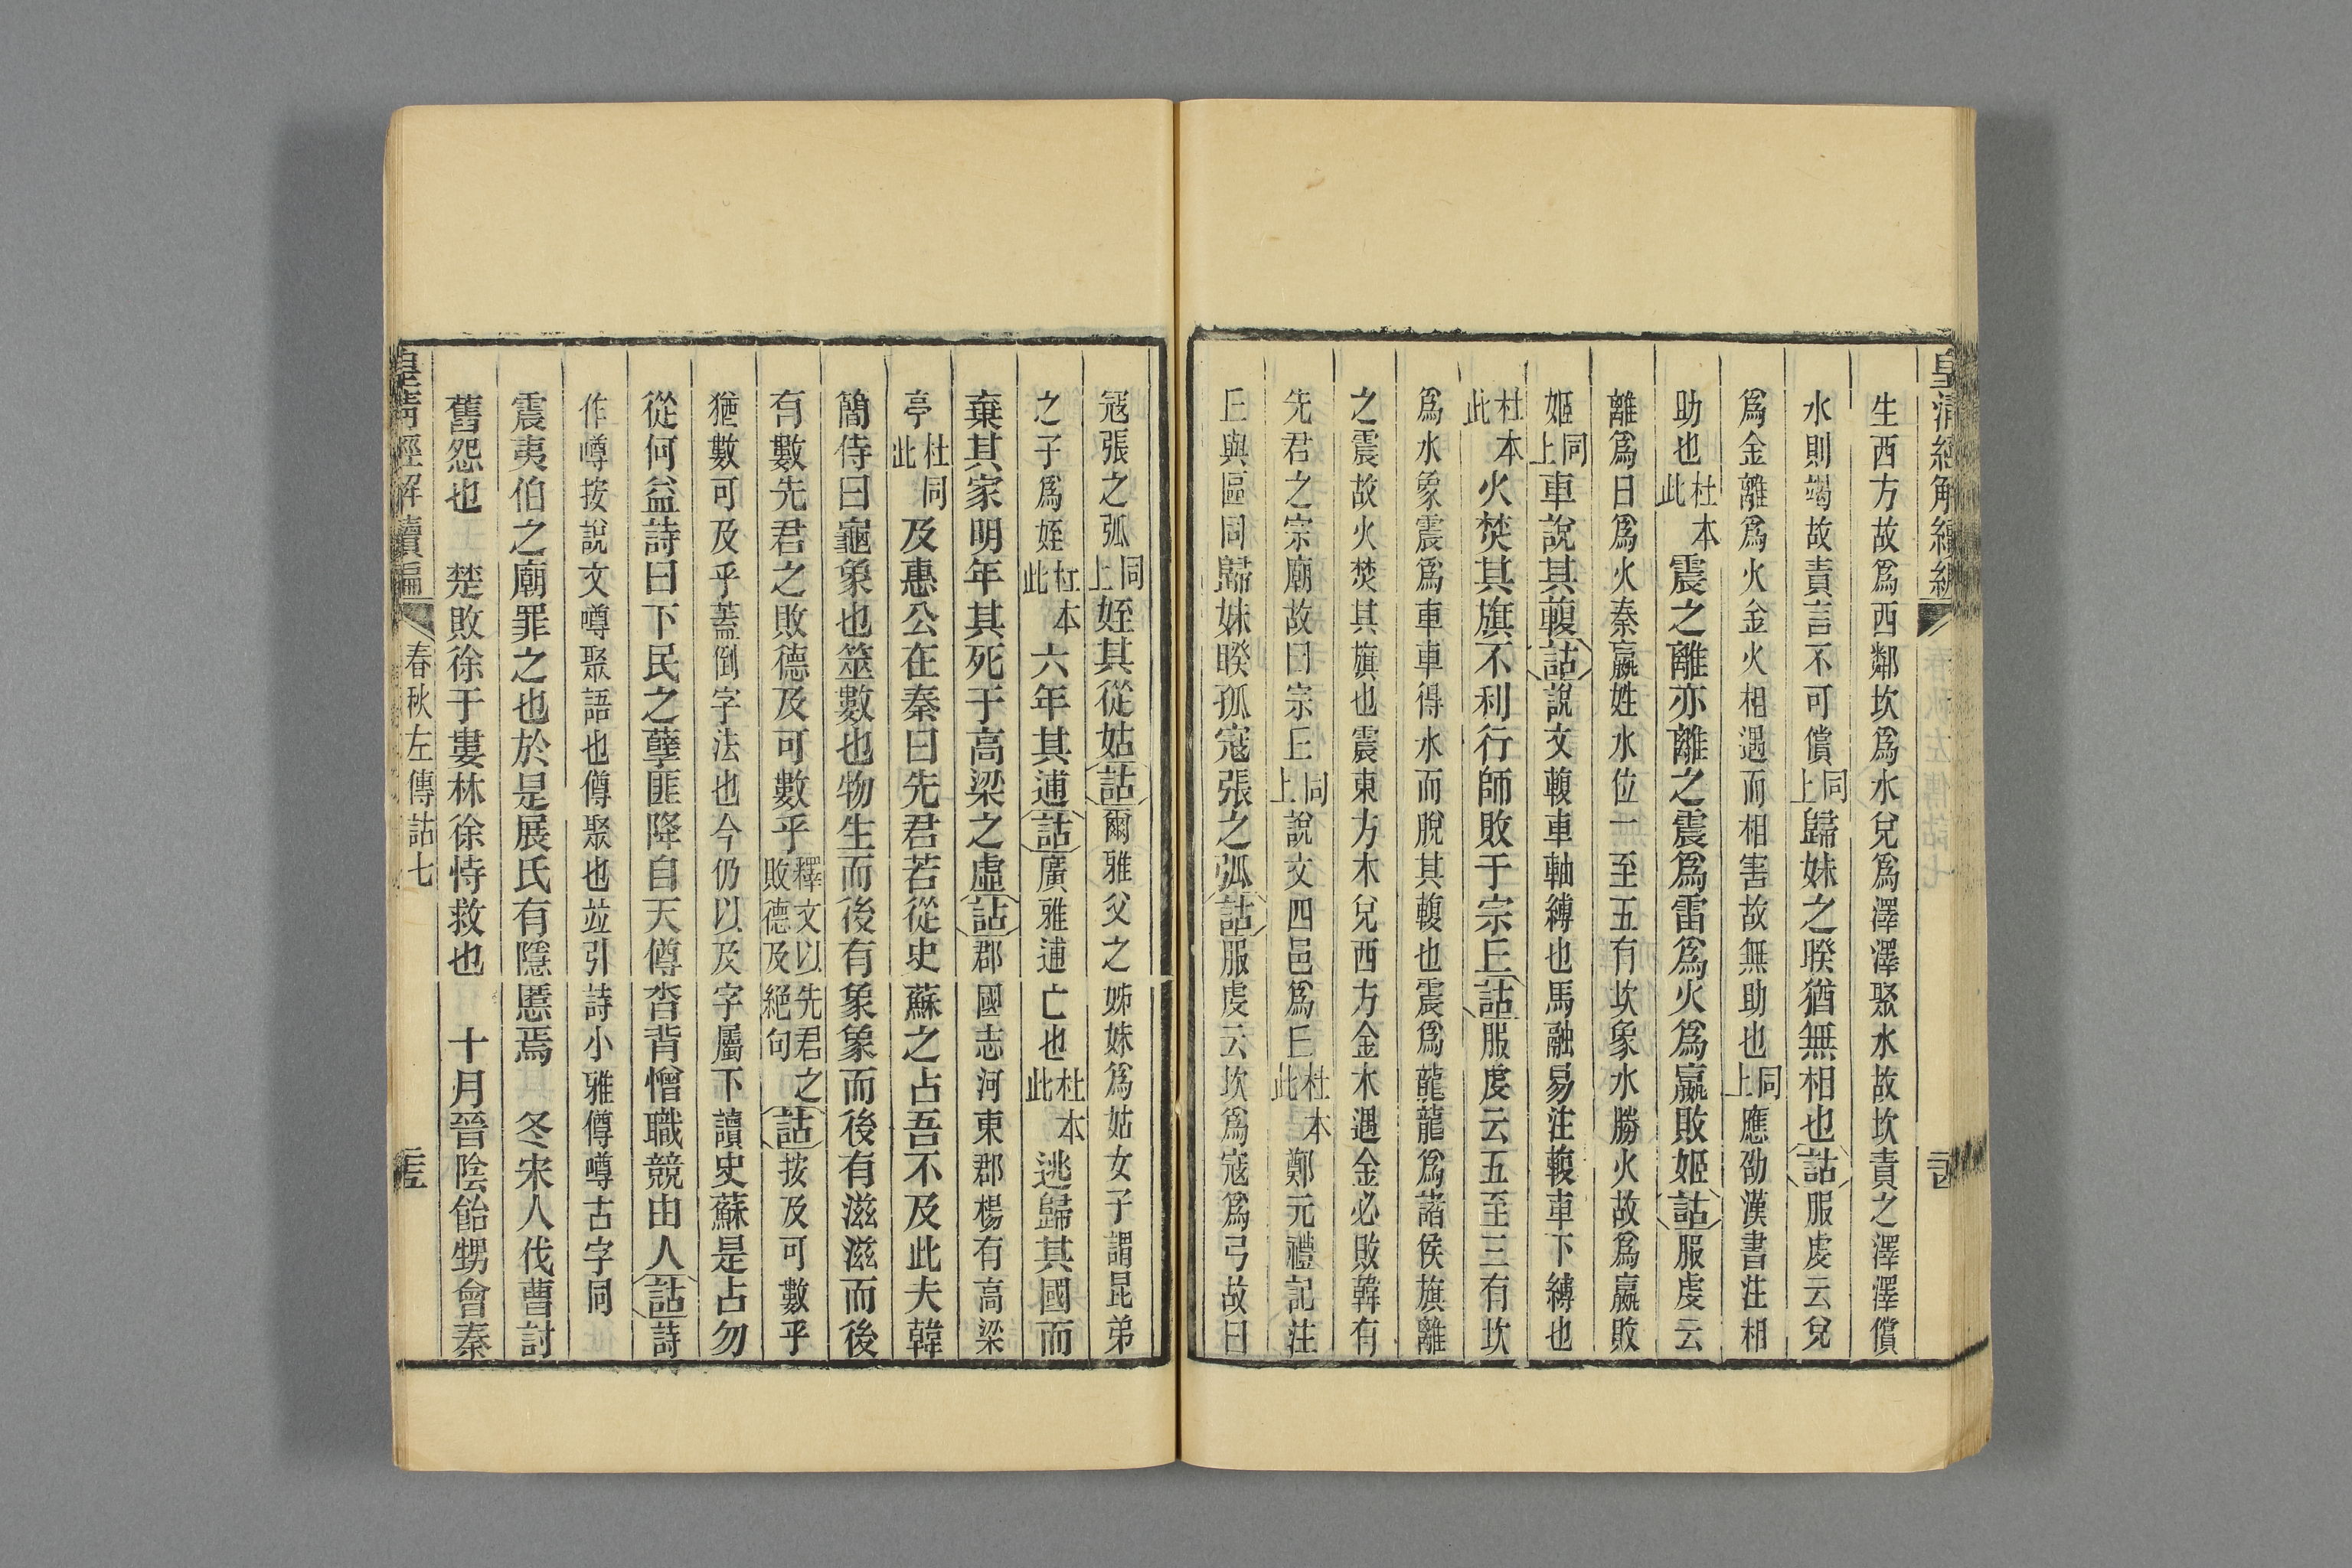 皇清經解續編
二十四
生西方故爲西鄰坎爲水兌爲澤澤聚水故坎責之澤澤償
水則竭故責言不可償同上歸妹之睽猶無相也詁服虔云兌
爲金離爲火金火相遇而相害故無助也同上應劭漢書注相
助也杜本此震之離亦離之震爲雷爲火爲嬴敗姬詁服虔云
離爲日爲火秦嬴姓水位一至五有坎象水勝火故爲嬴敗
姬同上車說其輹詁說文輹車軸縛也馬融易注輹車下縛也
杜本此火焚其旗不利行師敗于宗丘詁服虔云五至三有坎
爲水象震爲車車得水而脫其輹也震爲龍龍爲諸侯旗離
之震故火焚其旗也震東方木兌西方金木遇金必敗韓有
先君之宗廟故曰宗丘同上說文四邑爲丘杜本此鄭元禮記注
丘與區同歸妹睽孤寇張之弧詁服虔云坎爲寇爲弓故曰
寇張之弧同上姪其從姑詁爾雅父之姊妹爲姑女子謂昆弟
之子爲姪杜本此六年其逋詁廣雅逋亡也杜本此逃歸其國而
棄其家明年其死于高梁之虛詁郡國志河東郡楊有高梁
亭杜同此及惠公在秦曰先君若從史蘇之占吾不及此夫韓
簡侍曰龜象也筮數也物生而後有象象而後有滋滋而後
有數先君之敗德及可數乎釋文以先君之敗德及絕句詁按及可數乎
猶數可及乎蓋倒字法也今仍以及字屬下讀史蘇是占勿
從何益詩曰下民之孽匪降自天僔沓背憎職競由人詁詩
作噂按說文噂聚語也僔聚也竝引詩小雅僔噂古字同
震夷伯之廟罪之也於是展氏有隱慝焉　冬宋人伐曹討
舊怨也　楚敗徐于婁林徐恃救也　十月晉陰飴甥會秦
皇清經解續編
春秋左傳詁七
二十五